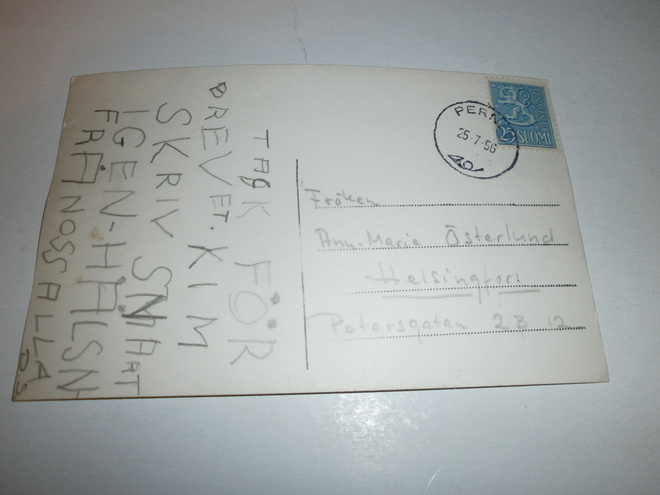 TACK FÖR
BREVET. KIM
SKRIV SNART
IGEN-HÄLSN
FRÅN OSS ALLA
PERN
25-7-56
25 SUOMI
Fröken
Ann-Marie Österlund
Helsingfors
Petersgatan 2 B 12